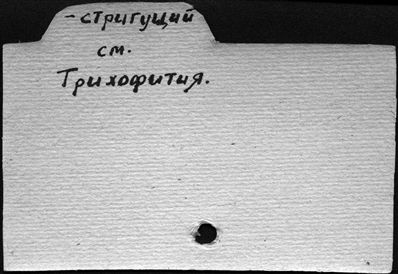 - стригущий
см.
Трихофития.